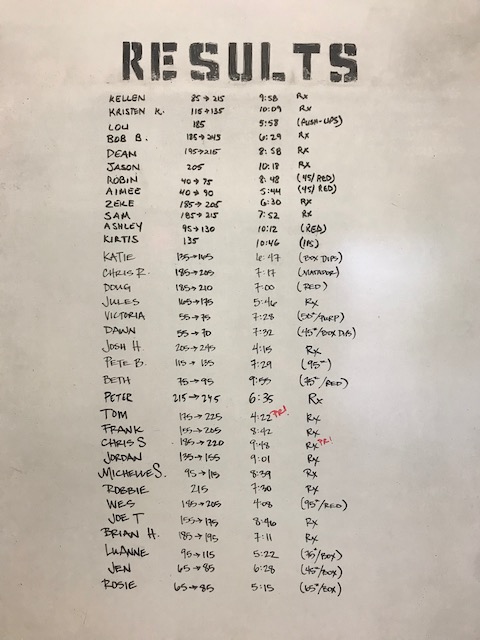 RESULTS
KELLEN 85→215 9:58 Rx
KRISTEN K. 115→135 10:09 Rx
LOU 185 5:58 (PUSH-UPS)
BOB B. 185→245 6:29 Rx
DEAN 195→215 8:58 Rx
JASON 205 10:18 Rx
ROBIN 40→75 8:48 (45/RED)
AIMEE 40→90 5:44 (45/RED)
ZEKE 185→205 6:30 Rx
SAM 185→215 7:52 Rx
ASHLEY 95→130 10:12 (RED)
KIRTIS 135 10:46
KATIE 135→165 6:47 (BOX DIPS)
CHRIS R. 185→205 7:17 (MATADOR)
DOUG 185→210 7:00 (RED)
JULES 165→175 5:46 Rx
VICTORIA 55→75 7:28 (55#/PURP)
DAWN 55→70 7:32 (45#/BOX DIPS)
JOSH H. 205→245 4:15 Rx
PETE B. 115→135 7:29 (95#)
BETH 75→95 9:55 (75#/RED)
PETER 215→245 6:35 Rx
TOM 175→225 4:22 PR! Rx
FRANK 155→205 8:42 Rx
CHRIS S 185→220 9:48 Rx PR!
JORDAN 135→155 9:01 Rx
MICHELLE S. 95→115 8:39 Rx
ROBBIE 215 7:30 Rx
WES 185→205 4:08 (95#/RED)
JOE T 155→175 8:46 Rx
BRIAN H. 185→195 7:11 Rx
LUANNE 95→115 5:22 (75#/BOX)
JEN 65→85 6:28 (45#/BOX)
ROSIE 65→85 5:15 (65#/BOX)